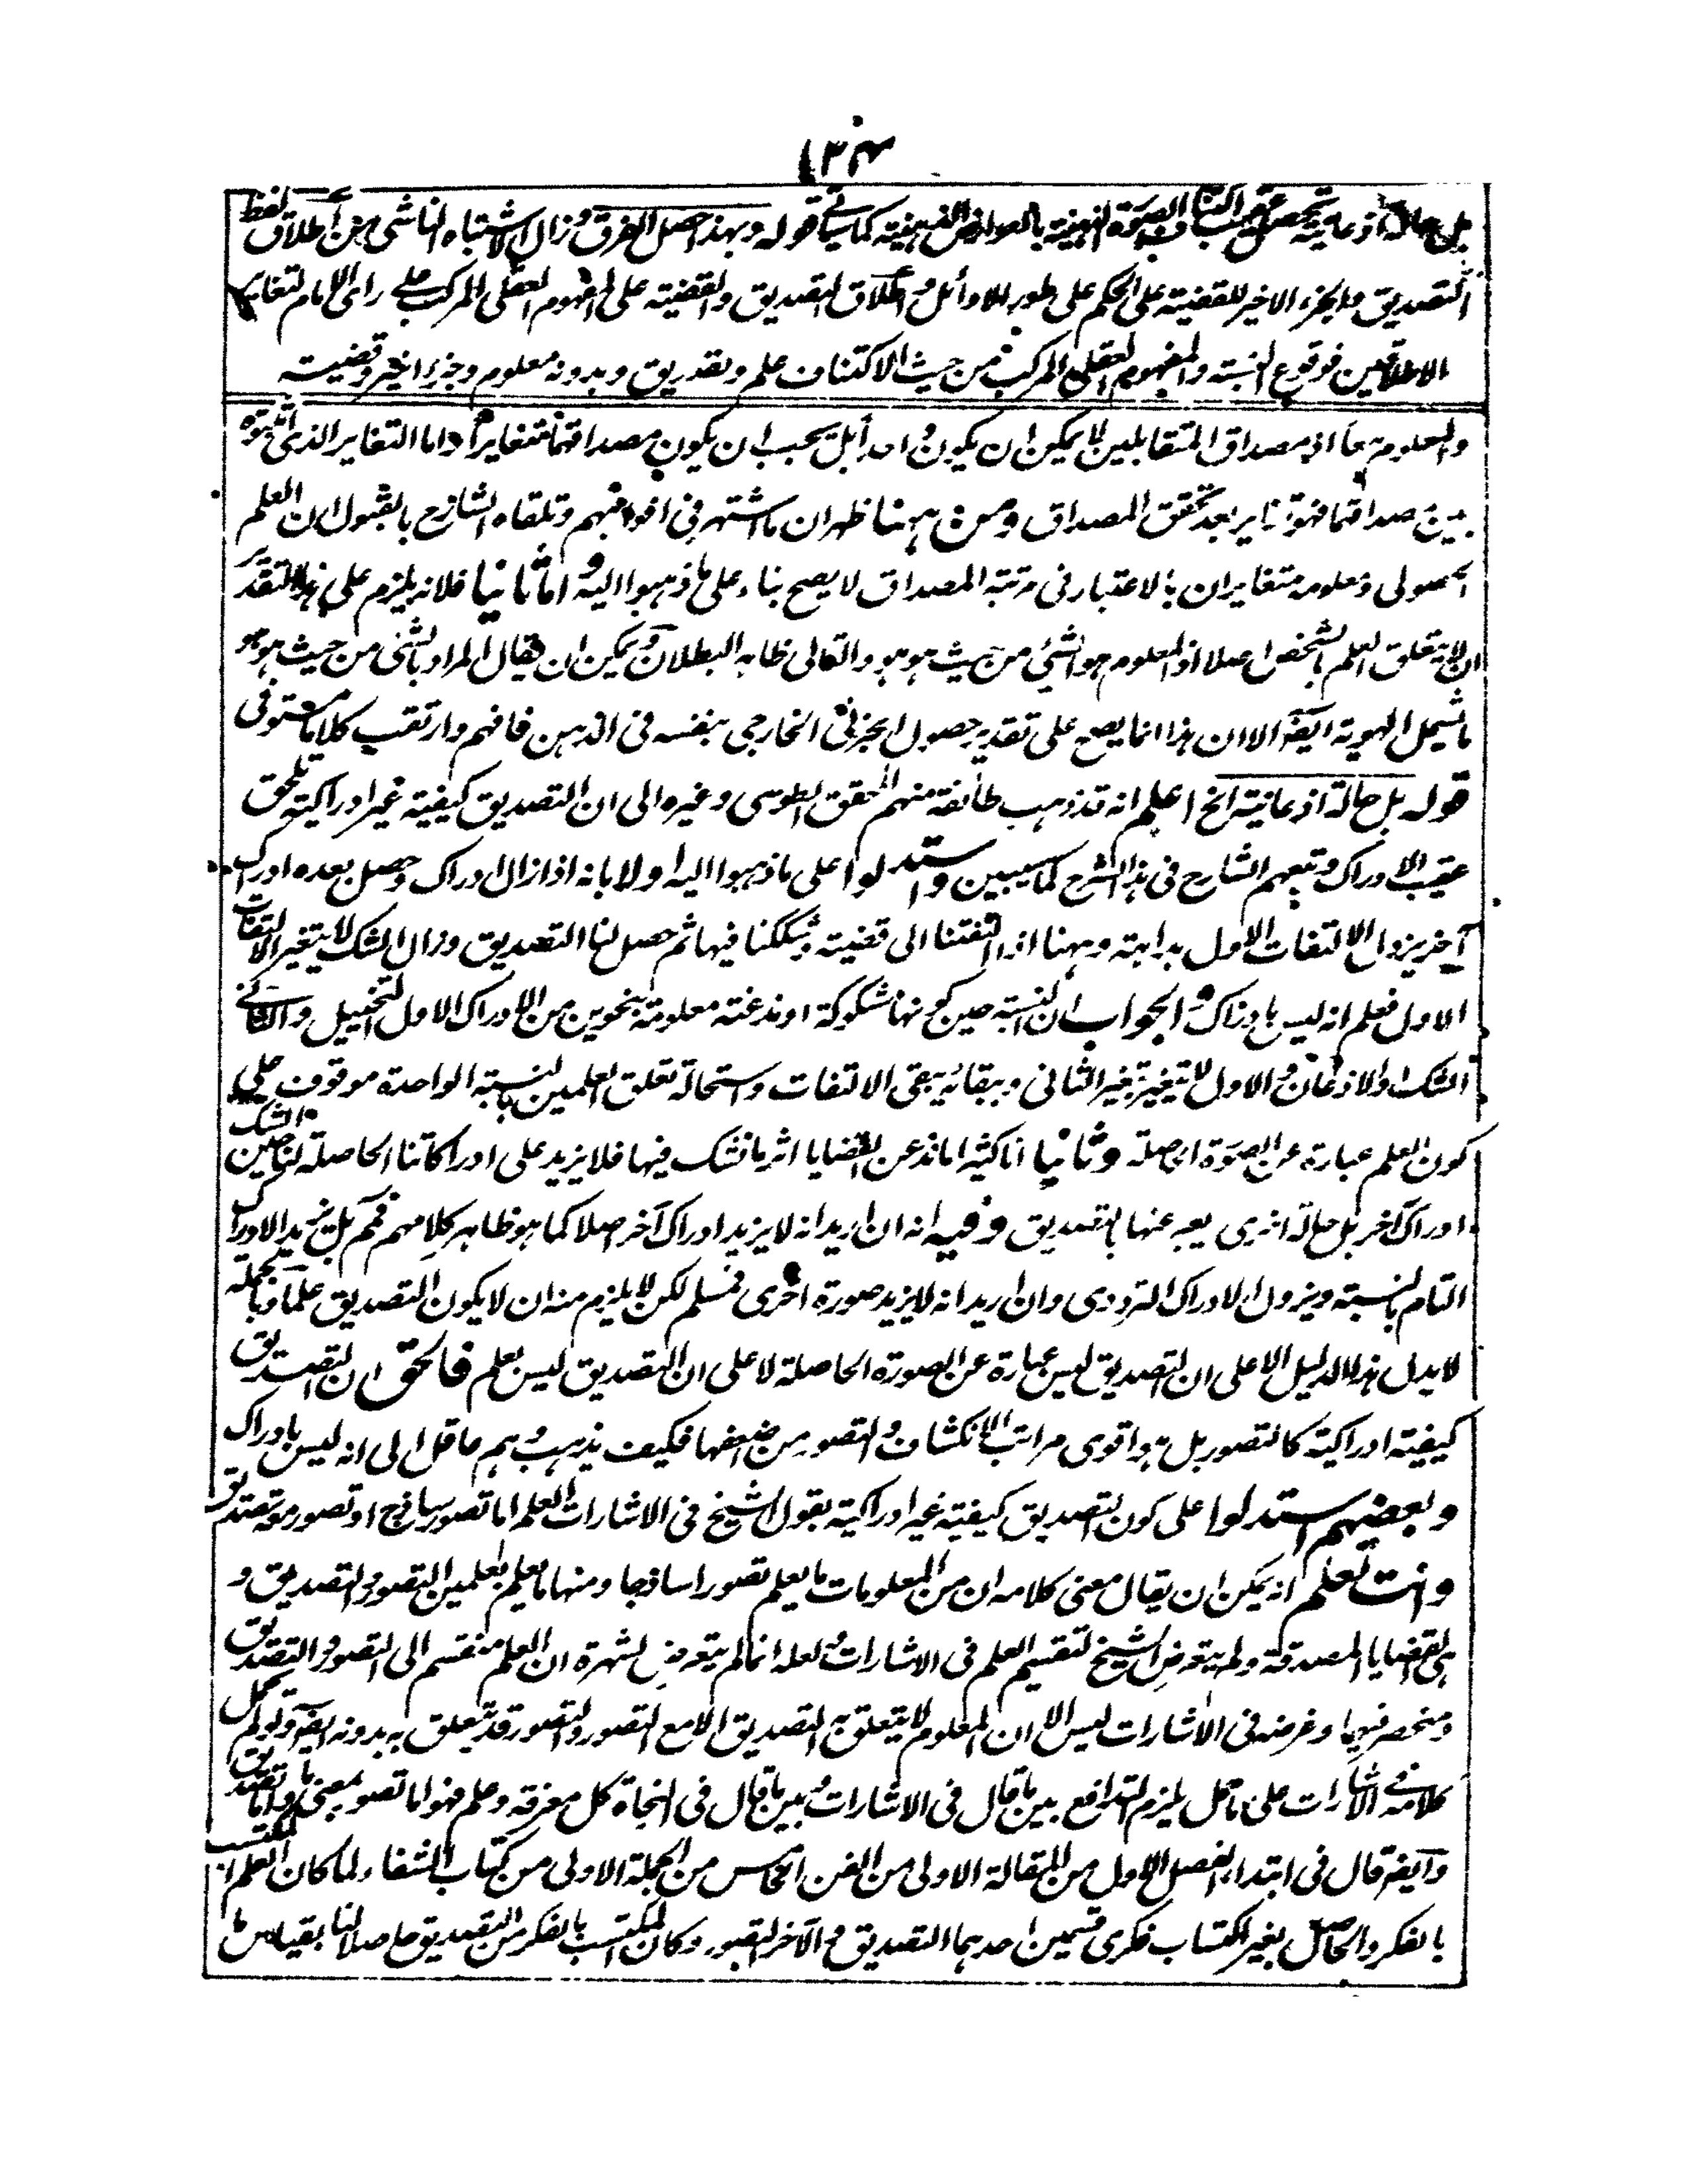 ١٣
بل حالة اذعانية تحصل عقيب اكتناف الصورة الذهنية بالعوارض الذهنية كما سيأتي قوله وبهذا حصل الفرق وزال الاشتباه الناشي من اطلاق لفظ
التصديق والجزء الاخير للقضية على الحكم على طور الاوائل واطلاق التصديق والقضية على المفهوم العقلي المركب على راى الامام لتغاير
الاطلاقين فوقوع النسبة والمفهوم العقلي المركب من حيث الاكتناف علم وتصديق وبدونه معلوم وجزء اخير وقضية
والمعلوم معا اذ مصداق المتقابلين لا يمكن ان يكون واحدا بل يجب ان يكون مصداقهما متغايرا واما التغاير الذى
بين مصداقهما فهو تغاير بعد تحقق المصداق ومن ههنا ظهر ان ما اشتهر فى افواههم وتلقاه الشارح بالقبول ان العلم
الحصولى ومعلومه متغايران بالاعتبار فى مرتبة المصداق لا يصح بناء على ما ذهبوا اليه واما ثانيا فلانه يلزم على هذا التقدير
ان لا يتعلق العلم بالشخص اصلا اذ المعلوم هو الشئ من حيث هو هو والتالى ظاهر البطلان ويمكن ان يقال المراد بالشئ من حيث هو هو
ما يشمل الهوية ايضا الا ان هذا انما يصح على تقدير حصول الجزئى الخارجى بنفسه فى الذهن فافهم وارتقب كلاما مستوفى
قوله بل حالة اذعانية الخ اعلم انه قد ذهب طائفة منهم المحقق الطوسى وغيره الى ان التصديق كيفية غير ادراكية تلحق
عقيب الادراك وتبعهم الشارح فى هذا الشرح كما سيبين واستدلوا على ما ذهبوا اليه اولا بانه اذا زال ادراك وحصل بعده ادراك
آخر يزول الالتفات الاول بداهة وههنا اذا التفتنا الى قضية وشككنا فيها ثم حصل لنا التصديق وزال الشك لا يتغير الالتفات
الاول فعلم انه ليس بادراك والجواب ان النسبة حين كونها مشكوكة او مذعنة معلومة بنحوين من الادراك الاول التخييل والثانى
الشك او الاذعان والاول لا يتغير بتغير الثانى وببقائه يبقى الالتفات واستحالة تعلق العلمين بالنسبة الواحدة موقوف على
كون العلم عبارة عن الصورة الحاصلة وثانيا انا كثيرا ما نذعن القضايا اثر ما نشك فيها فلا يزيد على ادراكاتنا الحاصلة لنا حين الشك
ادراك آخر بل حالة اخرى يعبر عنها بالتصديق وفيه انه ان اريد انه لا يزيد ادراك آخر اصلا كما هو ظاهر كلامهم فمم بل يزيد الادراك
التام بالنسبة ويزول الادراك الترددى وان اريد انه لا يزيد صورة اخرى فمسلم لكن لا يلزم منه ان لا يكون التصديق علما وبالجملة
لا يدل هذا الدليل الا على ان التصديق ليس عبارة عن الصورة الحاصلة لا على ان التصديق ليس بعلم فالحق ان التصديق
كيفية ادراكية كالتصور بل هو اقوى مراتب الانكشاف والتصور من ضعفها فكيف يذهب وهم عاقل الى انه ليس بادراك
وبعضهم استدلوا على كون التصديق كيفية غير ادراكية بقول الشيخ فى الاشارات العلم اما تصور ساذج او تصور معه تصديق
وانت تعلم انه يمكن ان يقال معنى كلامه ان من المعلومات ما يعلم تصورا ساذجا ومنها ما يعلم بعلمين التصور والتصديق و
هى القضايا المصدقة ولم يتعرض الشيخ لتقسيم العلم فى الاشارات ولعله انما لم يتعرض لشهرة ان العلم منقسم الى التصور والتصديق
ومنحصر فيهما وغرضه فى الاشارات ليس الا ان المعلوم لا يتعلق به التصديق الا مع التصور والتصور قد يتعلق به بدونه ايضا ولو لم يحمل
كلامه فى الاشارات على ما قل يلزم التدافع بين ما قال فى الاشارات وبين ما قال فى النجاة كل معرفة وعلم فهو اما تصور بمعنى ما واما تصديق
وايضا قال فى ابتداء الفصل الاول من المقالة الاولى من الفن الخامس من الجملة الاولى من كتاب الشفاء لما كان العلم المكتسب
بالفكر والحاصل بغير اكتساب فكرى قسمين احدهما التصديق والآخر التصور وكان المكتسب بالفكر من التصديق حاصلا لنا بقياس ما